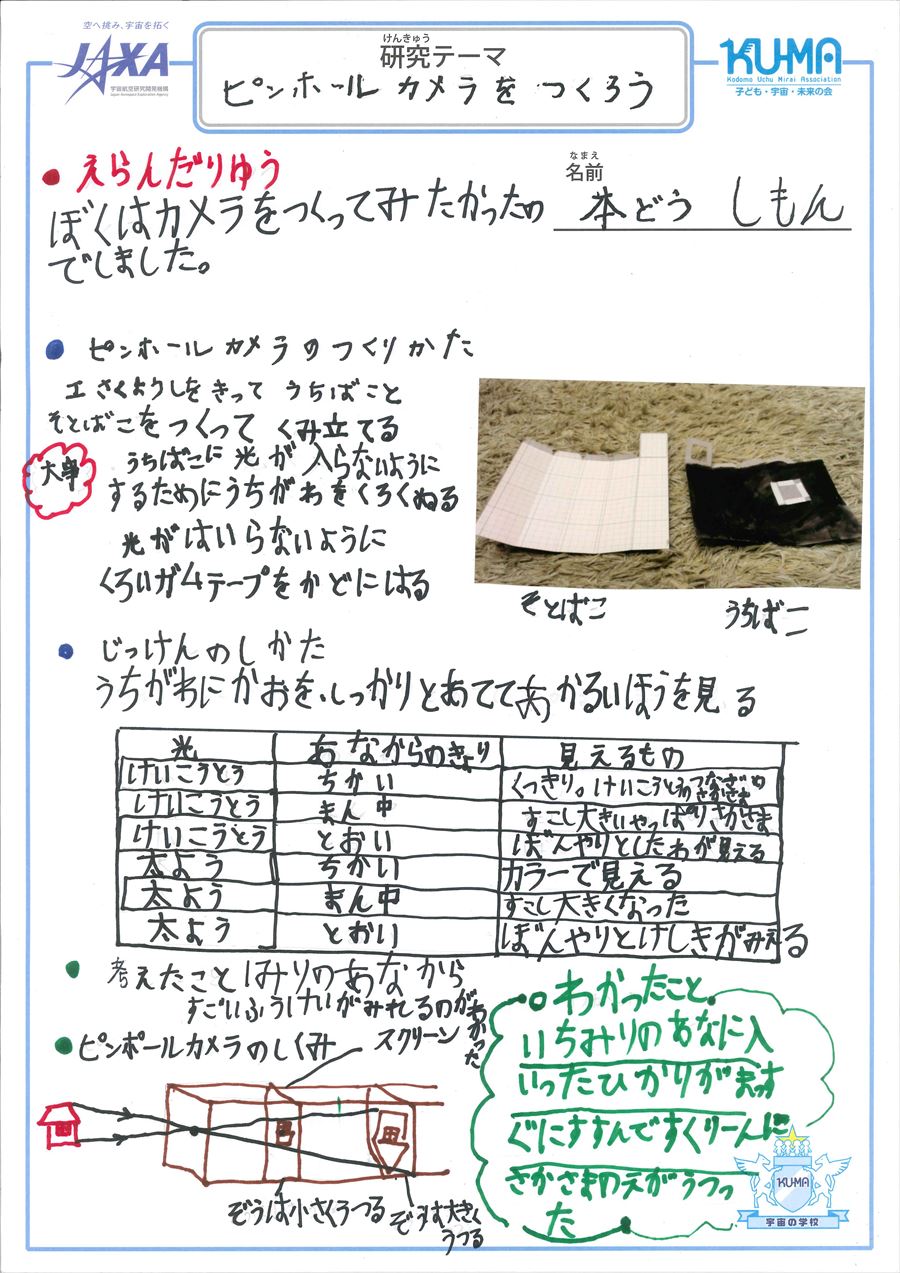 空へ挑み、宇宙を拓く
JAXA
宇宙航空研究開発機構
Japan Aerospace Exploration Agency
けんきゅう
研究テーマ
ピンホールカメラをつくろう
KU-MA
Kodomo Uchu Mirai Association
子ども・宇宙・未来の会
なまえ
名前
本どう しもん
えらんだりゆう
ぼくはカメラをつくってみたかったの
でしました。
ピンホールカメラのつくりかた
工さくようしをきって うちばこと
そとばこをつくって くみ立てる
大事
うちばこに光が入らないように
するためにうちがわをくろくぬる
光がはいらないように
くろいガムテープをかどにはる
そとばこ
うちばこ
じっけんのしかた
うちがわにかおを、しっかりとあててあかるいほうを見る
光 あなからのきょり 見えるもの
けいこうとう ちかい くっきり。けいこうとう
けいこうとう まん中 すこし大きいやっぱりさかさま
けいこうとう とおい ぼんやりとしたわが見える
太よう ちかい カラーで見える
太よう まん中 すこし大きくなった
太よう とおい ぼんやりとけしきがみえる
考えたこと 1みりのあなから
すごいふうけいがみれるのがわかった
ピンポールカメラのしくみ
スクリーン
ぞうは小さくうつる
ぞうは大きく
うつる
わかったこと
いちみりのあなに入
いったひかりがまっす
ぐにすすんですくりーんに
さかさまのえがうつっ
た
KU-MA
宇宙の学校